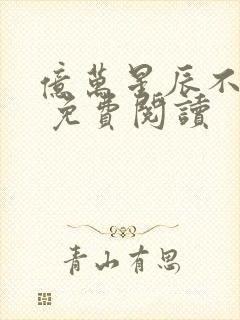 億萬星辰不
免費閱讀
青山有思